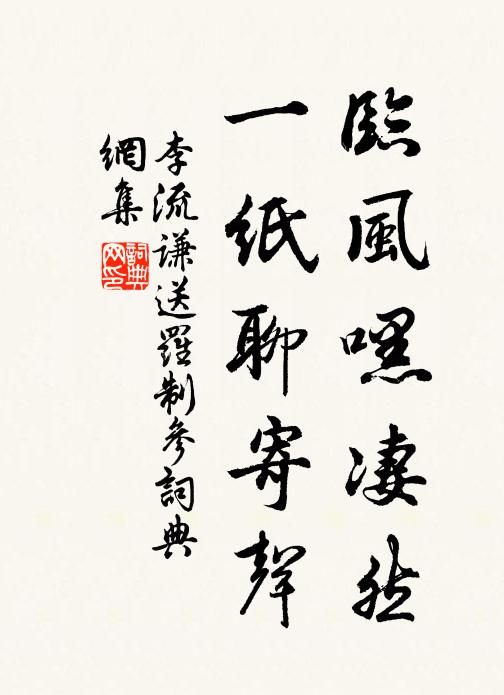 臨風嘿凄然
一紙聊寄聲
李流謙送羅制參詞典
網集
詞典
网印